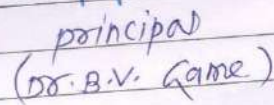 principal
(Dr. B.V. Game)